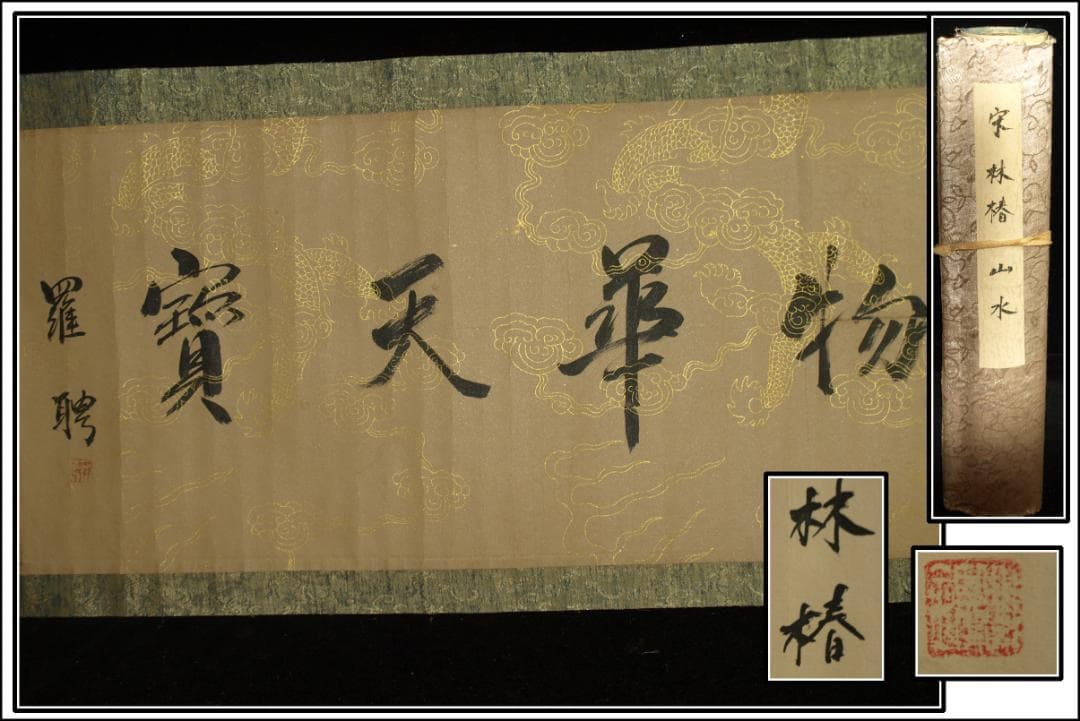 物華天寶
羅聘
宋林椿山水
林椿